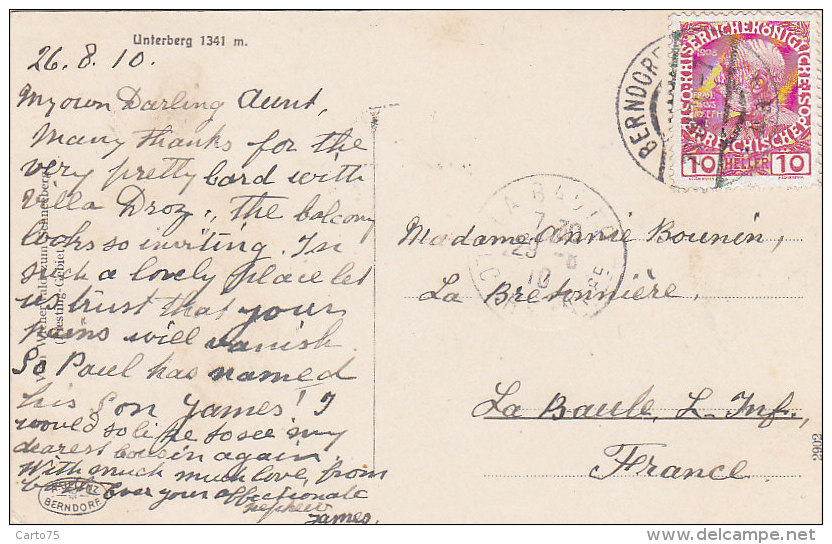 Unterberg 1341 m.
26.8.10.
My own Darling Aunt,
Many thanks for the
very pretty card with
Villa Droz, the balcony
looks so inviting. In
such a lovely place let
us trust that your
pains will vanish.
So Paul has named
his son James! I
would so like to see my
dearest cousin again.
With much much love, from
Ever your affectionate
nephew
James.
BERNDORF
BERNDORF
7 30
29 -8
10
10 HELLER 10
Madame Annie Bounin,
La Bretonnière,
La Baule, L. Inf.,
France.
2902
Carto75
www.delcampe.net